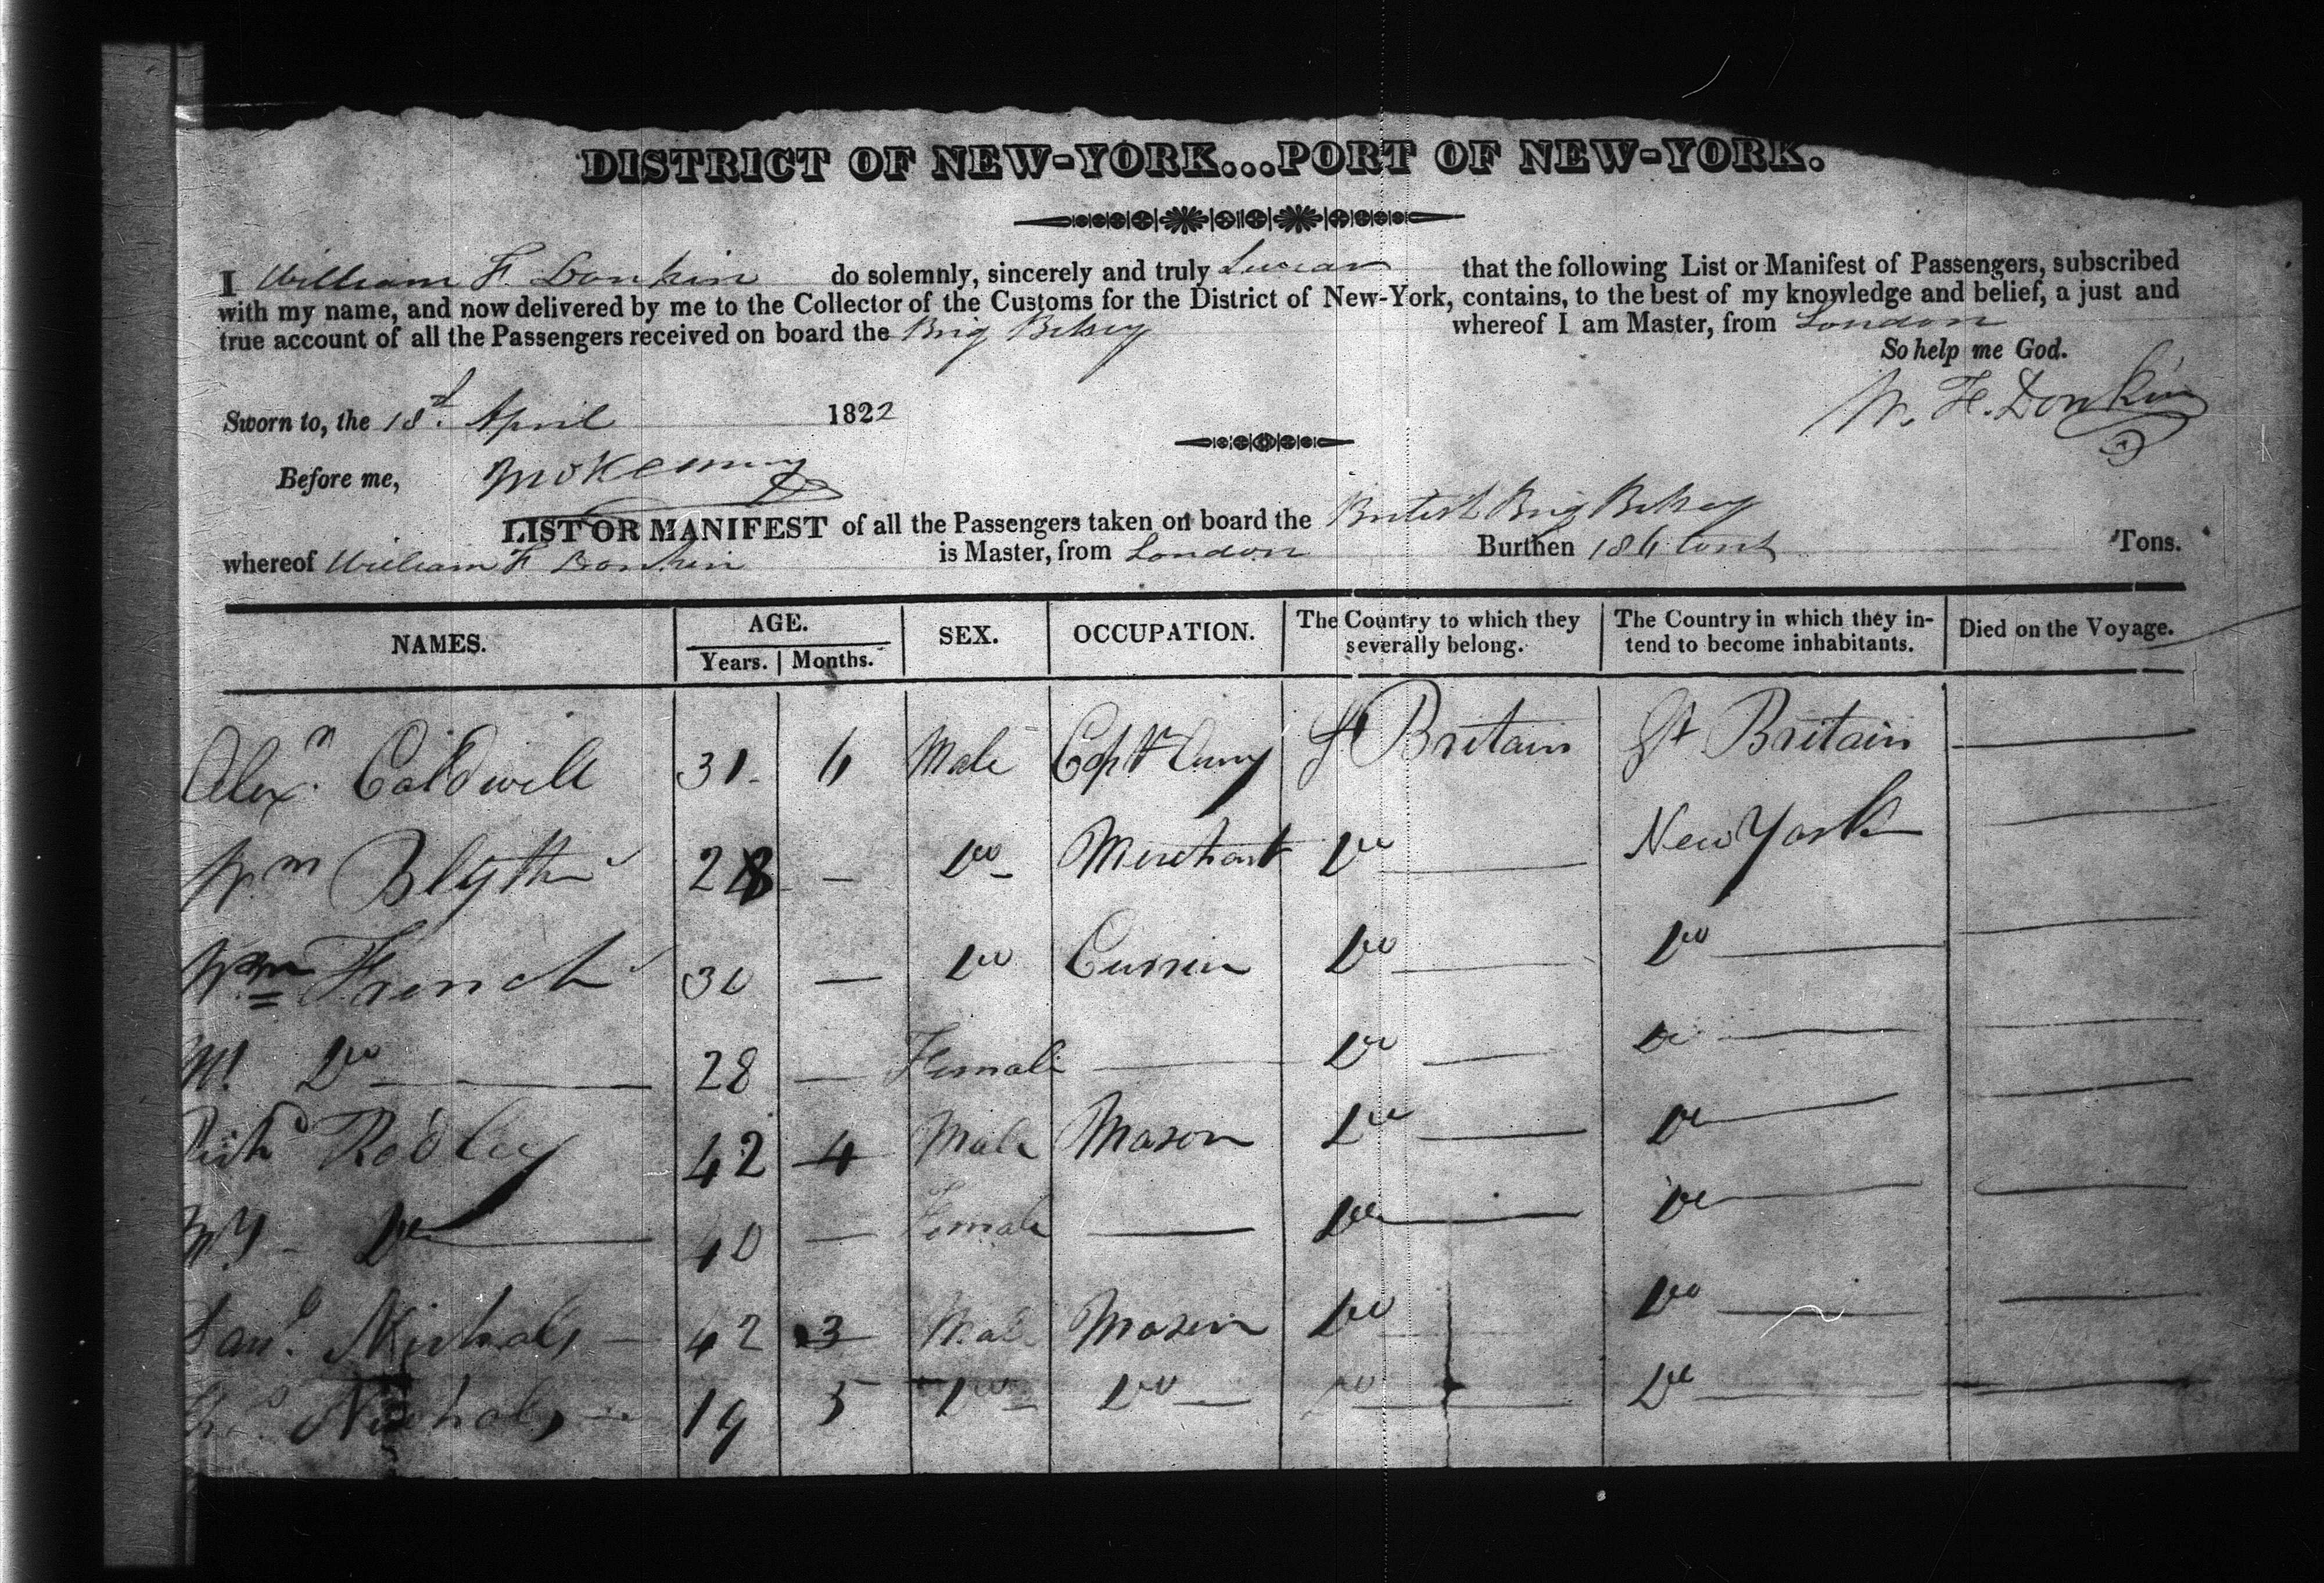 DISTRICT OF NEW-YORK...PORT OF NEW-YORK.
I William F. Donkin do solemnly, sincerely and truly Swear that the following List or Manifest of Passengers, subscribed
with my name, and now delivered by me to the Collector of the Customs for the District of New-York, contains, to the best of my knowledge and belief, a just and
true account of all the Passengers received on board the Brig Betsey whereof I am Master, from London
So help me God.
W. F. Donkin
Sworn to, the 18th April 1822
Before me,
LIST OR MANIFEST of all the Passengers taken on board the British Brig Betsey
whereof William F Donkin is Master, from London Burthen 186 tons Tons.
NAMES. AGE. Years. Months. SEX. OCCUPATION. The Country to which they severally belong. The Country in which they intend to become inhabitants. Died on the Voyage.
Alexr. Caldwell 31 6 Male Captn Army Gt Britain Gt Britain —
Wm Blyth 28 — Do Merchant Do — New York —
Wm French 30 — Do Do — Do — —
Do — 28 — Female — Do — Do — —
Richd Rodley 42 4 Male Mason Do — Do — —
Do — 40 — Female — Do — Do — —
Saml. Nichols — 42 3 Male Mason Do Do — —
Thos. Nichols — 19 5 Do Do — Do — Do — —